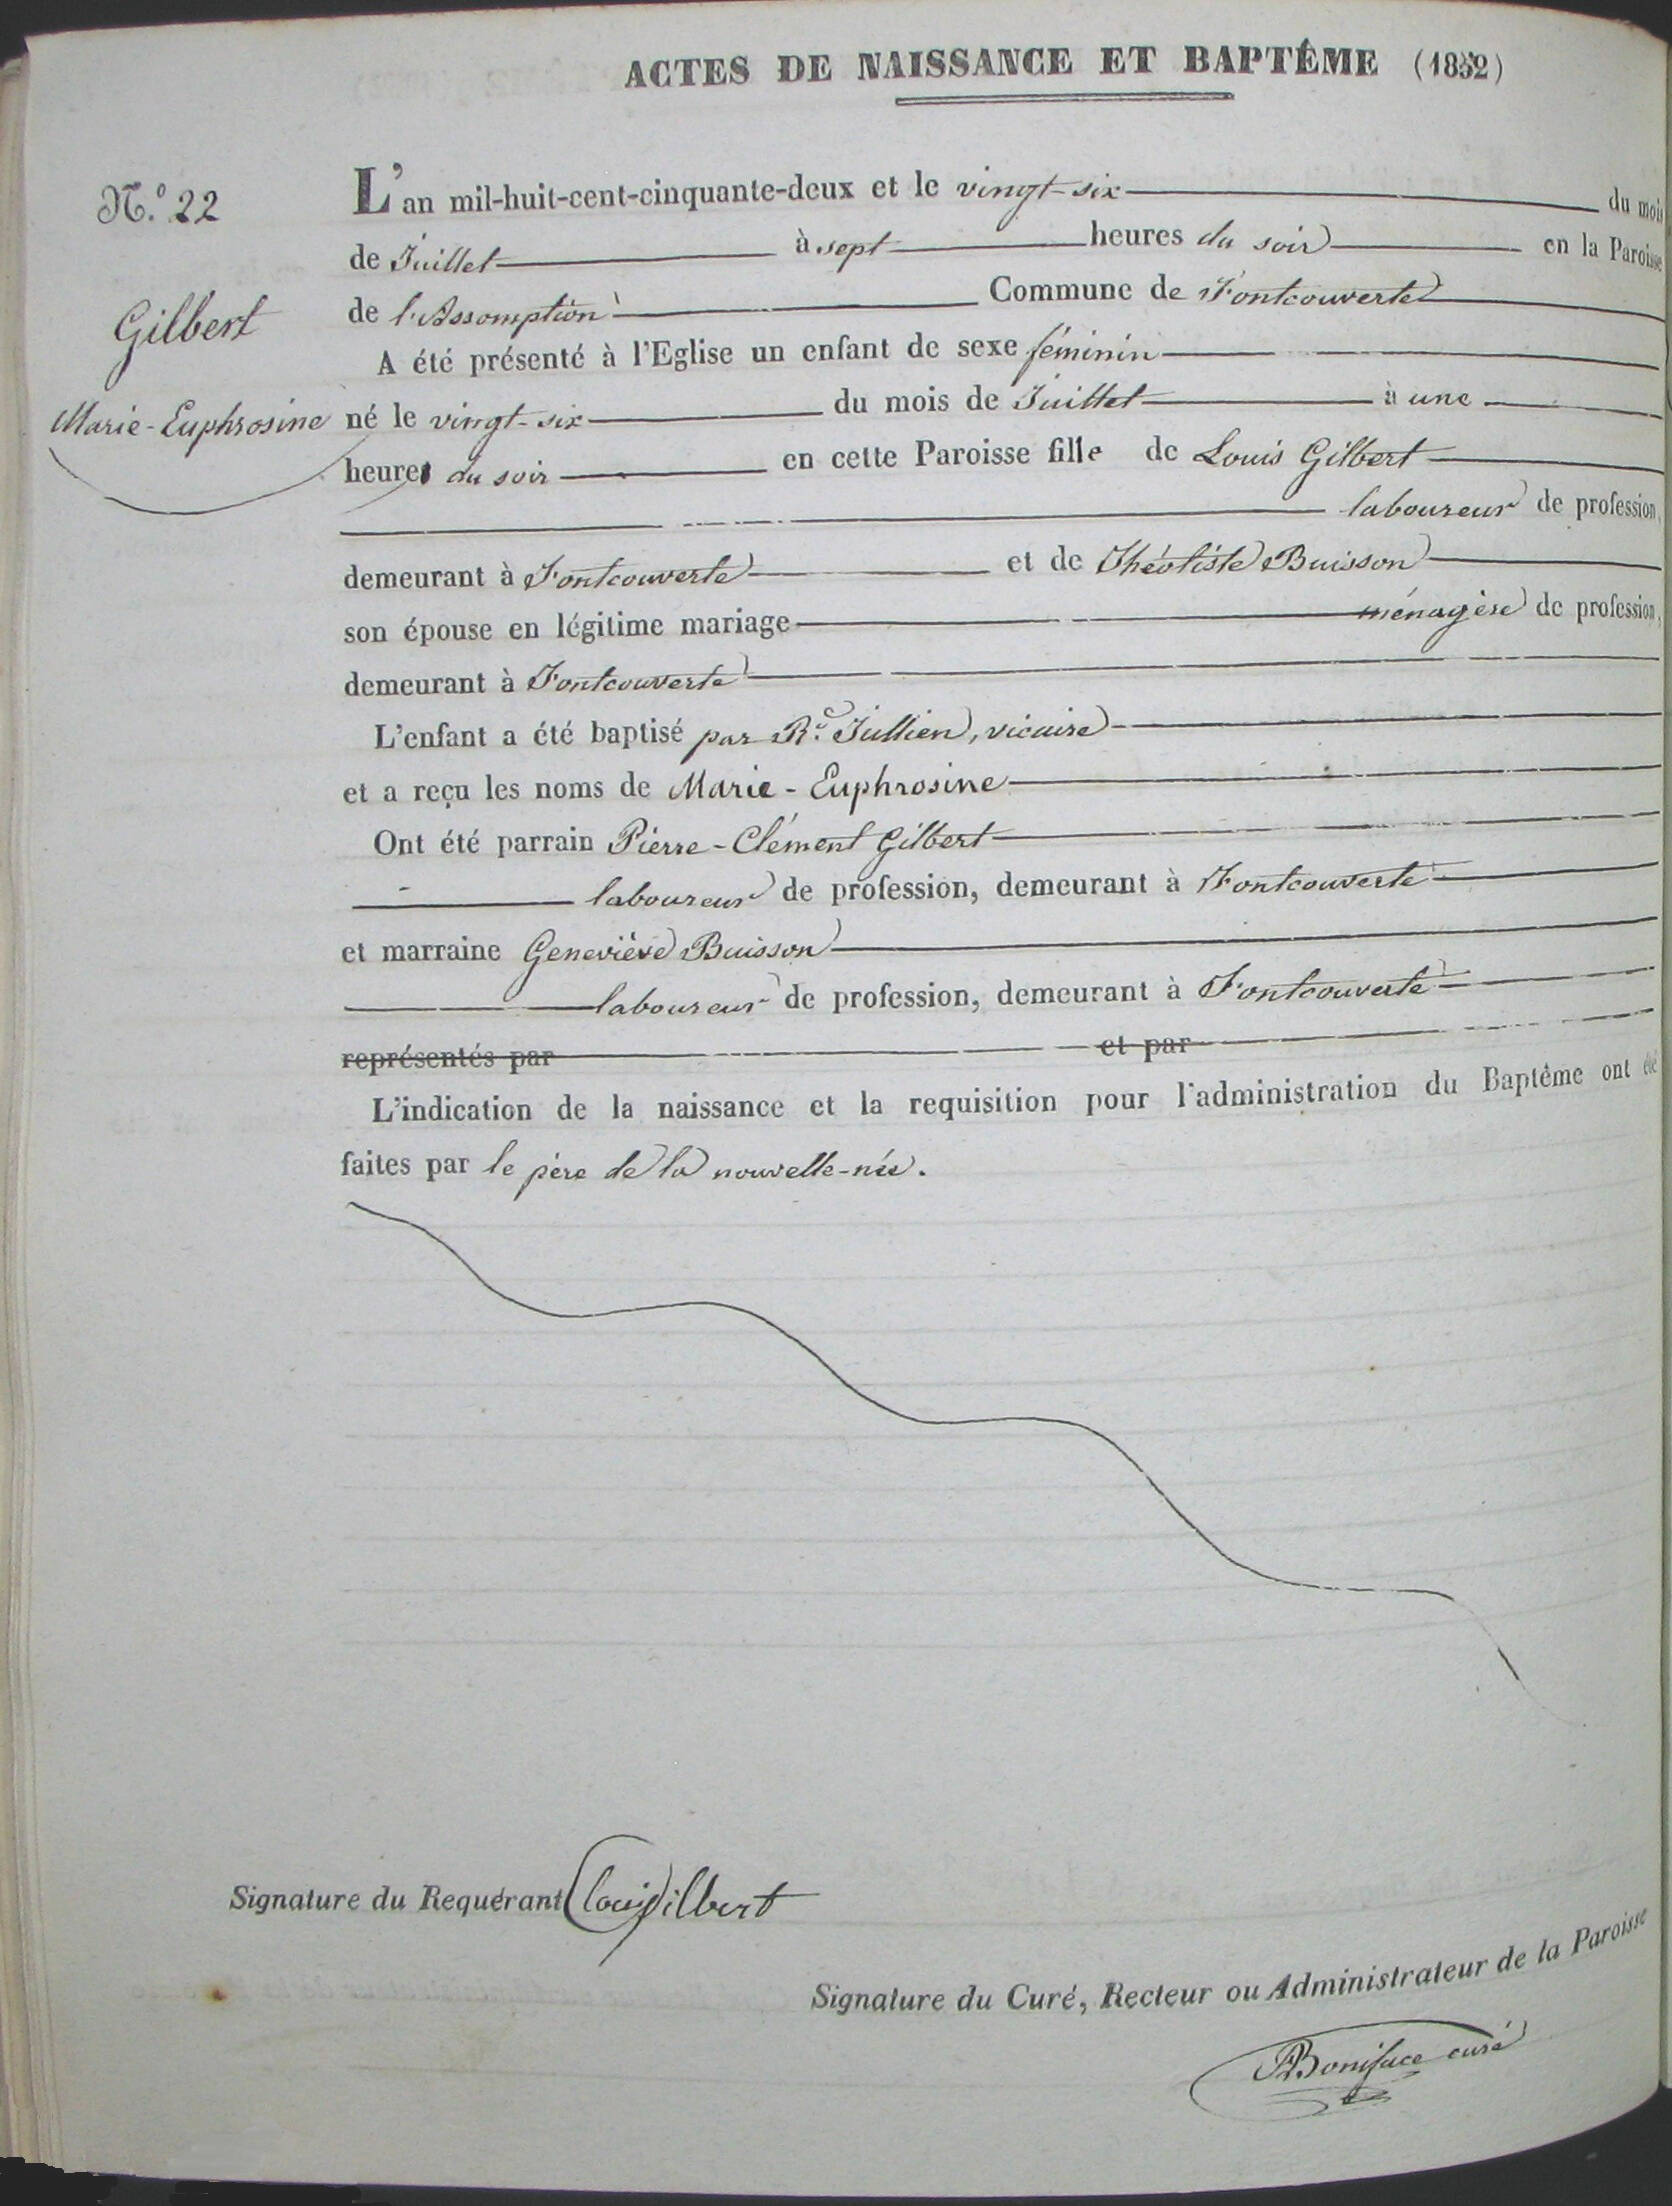 ACTES DE NAISSANCE ET BAPTÊME (1852)
N.º 22
Gilbert
Marie-Euphrosine
L'an mil-huit-cent-cinquante-deux et le vingt-six du mois
de Juillet à sept heures du soir en la Paroisse
de l'Assomption Commune de Fontcouverte
A été présenté à l'Eglise un enfant de sexe féminin
né le vingt-six du mois de Juillet à une
heure du soir en cette Paroisse fille de Louis Gilbert
laboureur de profession,
demeurant à Fontcouverte et de Théotiste Buisson
son épouse en légitime mariage ménagère de profession,
demeurant à Fontcouverte
L'enfant a été baptisé par R.d Jullien, vicaire
et a reçu les noms de Marie-Euphrosine
Ont été parrain Pierre-Clément Gilbert
laboureur de profession, demeurant à Fontcouverte
et marraine Geneviève Buisson
laboureur de profession, demeurant à Fontcouverte
représentés par et par
L'indication de la naissance et la requisition pour l'administration du Baptême ont été
faites par le père de la nouvelle-née.
Signature du Requérant Louis Gilbert
Signature du Curé, Recteur ou Administrateur de la Paroisse
Boniface curé